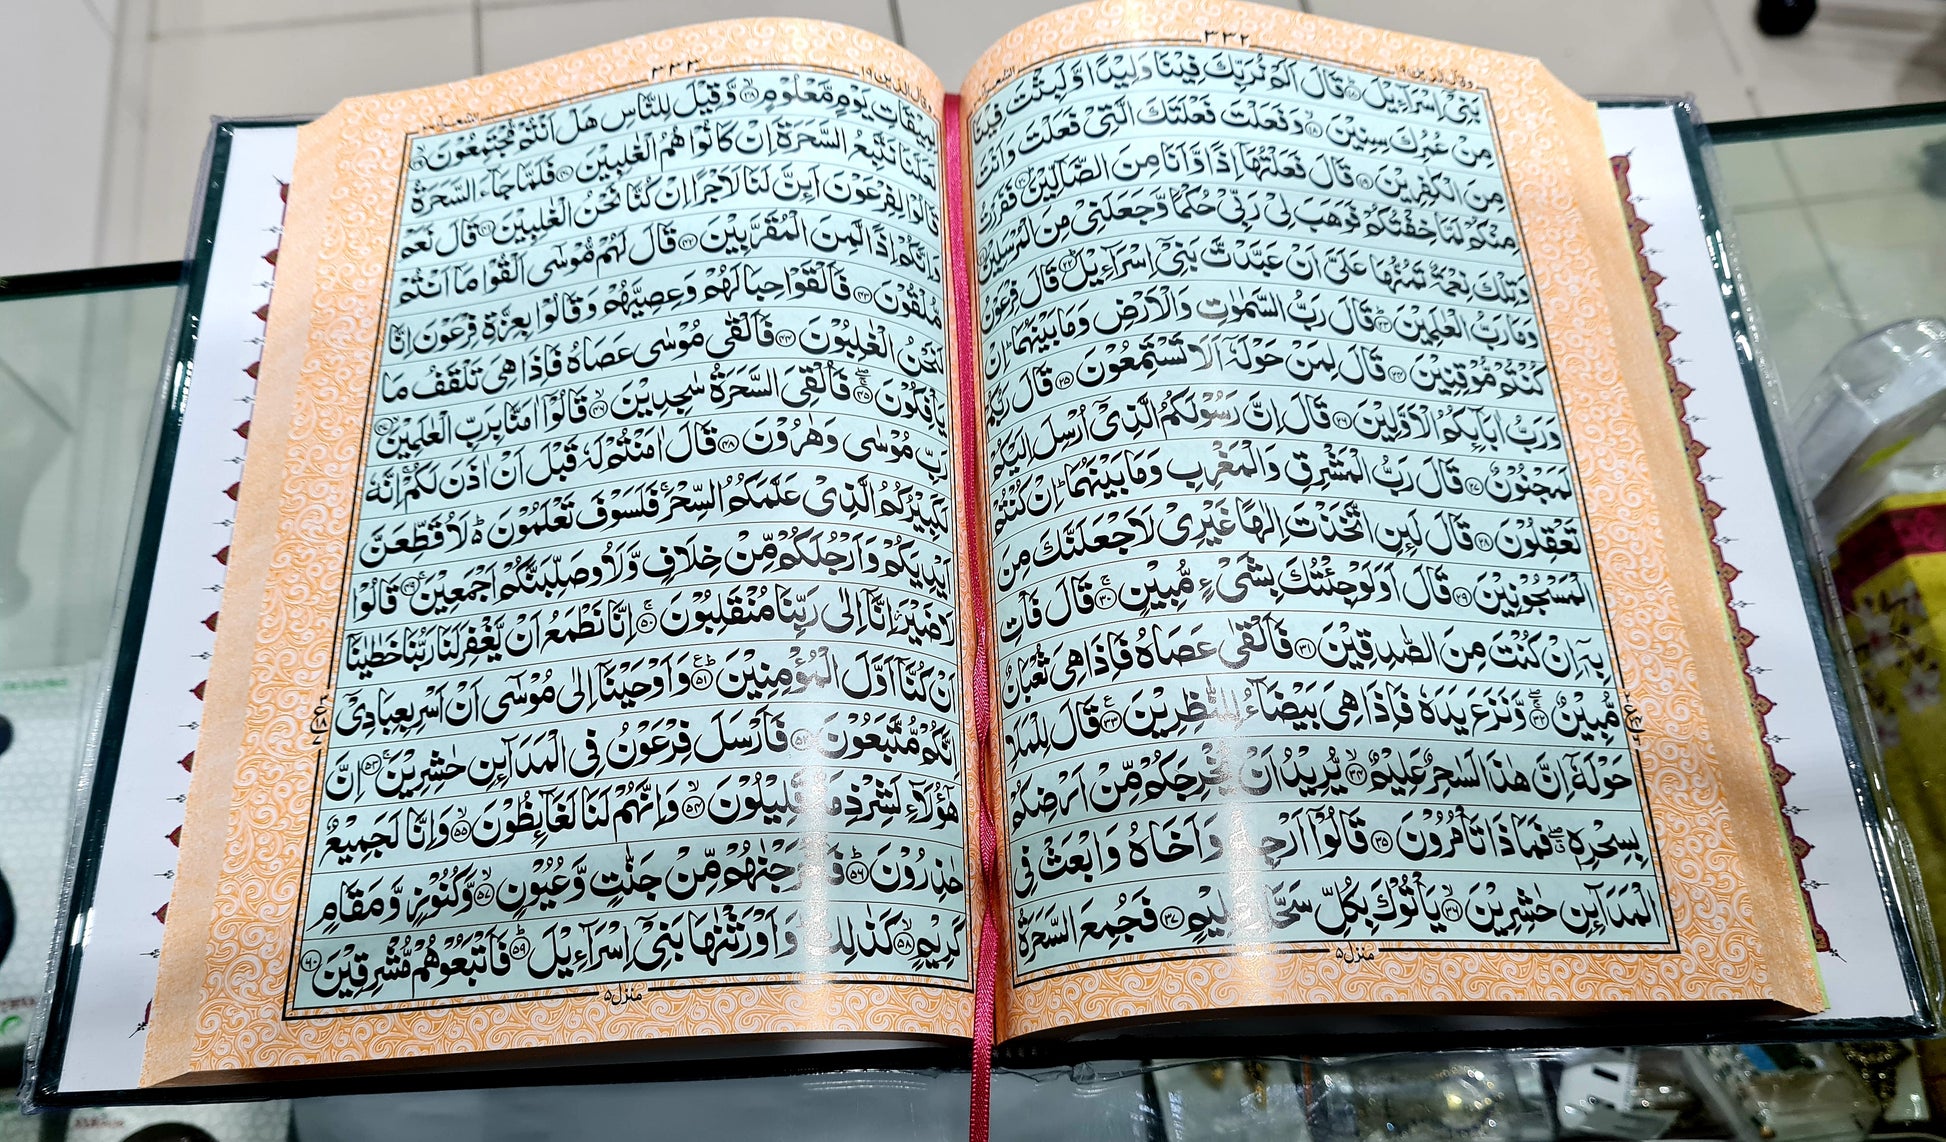 وقال الذين ١٩
٣٣٢
بَنِيْٓ اِسْرَآءِيْلَ ۝١٧ قَالَ اَلَمْ نُرَبِّكَ فِيْنَا وَلِيْدًا وَّلَبِثْتَ فِيْنَا
مِنْ عُمُرِكَ سِنِيْنَ ۝١٨ وَفَعَلْتَ فَعْلَتَكَ الَّتِيْ فَعَلْتَ وَاَنْتَ
مِنَ الْكٰفِرِيْنَ ۝١٩ قَالَ فَعَلْتُهَآ اِذًا وَّاَنَا مِنَ الضَّآلِّيْنَ ۝٢٠ فَفَرَرْتُ
مِنْكُمْ لَمَّا خِفْتُكُمْ فَوَهَبَ لِيْ رَبِّيْ حُكْمًا وَّجَعَلَنِيْ مِنَ الْمُرْسَلِيْنَ ۝٢١
وَتِلْكَ نِعْمَةٌ تَمُنُّهَا عَلَيَّ اَنْ عَبَّدْتَّ بَنِيْٓ اِسْرَآءِيْلَ ۝٢٢ قَالَ فِرْعَوْنُ
وَمَا رَبُّ الْعٰلَمِيْنَ ۝٢٣ قَالَ رَبُّ السَّمٰوٰتِ وَالْاَرْضِ وَمَا بَيْنَهُمَا ؕ اِنْ
كُنْتُمْ مُّوْقِنِيْنَ ۝٢٤ قَالَ لِمَنْ حَوْلَهٗٓ اَلَا تَسْتَمِعُوْنَ ۝٢٥ قَالَ رَبُّكُمْ
وَرَبُّ اٰبَآئِكُمُ الْاَوَّلِيْنَ ۝٢٦ قَالَ اِنَّ رَسُوْلَكُمُ الَّذِيْٓ اُرْسِلَ اِلَيْكُمْ
لَمَجْنُوْنٌ ۝٢٧ قَالَ رَبُّ الْمَشْرِقِ وَالْمَغْرِبِ وَمَا بَيْنَهُمَا ؕ اِنْ كُنْتُمْ
تَعْقِلُوْنَ ۝٢٨ قَالَ لَئِنِ اتَّخَذْتَ اِلٰهًا غَيْرِيْ لَاَجْعَلَنَّكَ مِنَ
الْمَسْجُوْنِيْنَ ۝٢٩ قَالَ اَوَلَوْ جِئْتُكَ بِشَيْءٍ مُّبِيْنٍ ۝٣٠ قَالَ فَاْتِ
بِهٖٓ اِنْ كُنْتَ مِنَ الصّٰدِقِيْنَ ۝٣١ فَاَلْقٰى عَصَاهُ فَاِذَا هِيَ ثُعْبَانٌ
مُّبِيْنٌ ۝٣٢ وَّنَزَعَ يَدَهٗ فَاِذَا هِيَ بَيْضَآءُ لِلنّٰظِرِيْنَ ۝٣٣ قَالَ لِلْمَلَاِ
حَوْلَهٗٓ اِنَّ هٰذَا لَسٰحِرٌ عَلِيْمٌ ۝٣٤ يُّرِيْدُ اَنْ يُّخْرِجَكُمْ مِّنْ اَرْضِكُمْ
بِسِحْرِهٖ فَمَاذَا تَاْمُرُوْنَ ۝٣٥ قَالُوْٓا اَرْجِهْ وَاَخَاهُ وَابْعَثْ فِي
الْمَدَآئِنِ حٰشِرِيْنَ ۝٣٦ يَاْتُوْكَ بِكُلِّ سَحَّارٍ عَلِيْمٍ ۝٣٧ فَجُمِعَ السَّحَرَةُ
منزل ٥
وقال الذين ١٩
٣٣٣
لِمِيْقَاتِ يَوْمٍ مَّعْلُوْمٍ ۝٣٨ وَّقِيْلَ لِلنَّاسِ هَلْ اَنْتُمْ مُّجْتَمِعُوْنَ ۝٣٩
لَعَلَّنَا نَتَّبِعُ السَّحَرَةَ اِنْ كَانُوْا هُمُ الْغٰلِبِيْنَ ۝٤٠ فَلَمَّا جَآءَ السَّحَرَةُ
قَالُوْا لِفِرْعَوْنَ اَئِنَّ لَنَا لَاَجْرًا اِنْ كُنَّا نَحْنُ الْغٰلِبِيْنَ ۝٤١ قَالَ نَعَمْ
وَاِنَّكُمْ اِذًا لَّمِنَ الْمُقَرَّبِيْنَ ۝٤٢ قَالَ لَهُمْ مُّوْسٰٓى اَلْقُوْا مَآ اَنْتُمْ
مُّلْقُوْنَ ۝٤٣ فَاَلْقَوْا حِبَالَهُمْ وَعِصِيَّهُمْ وَقَالُوْا بِعِزَّةِ فِرْعَوْنَ اِنَّا
لَنَحْنُ الْغٰلِبُوْنَ ۝٤٤ فَاَلْقٰى مُوْسٰى عَصَاهُ فَاِذَا هِيَ تَلْقَفُ مَا
يَاْفِكُوْنَ ۝٤٥ فَاُلْقِيَ السَّحَرَةُ سٰجِدِيْنَ ۝٤٦ قَالُوْٓا اٰمَنَّا بِرَبِّ الْعٰلَمِيْنَ ۝٤٧
رَبِّ مُوْسٰى وَهٰرُوْنَ ۝٤٨ قَالَ اٰمَنْتُمْ لَهٗ قَبْلَ اَنْ اٰذَنَ لَكُمْ ۚ اِنَّهٗ
لَكَبِيْرُكُمُ الَّذِيْ عَلَّمَكُمُ السِّحْرَ ۚ فَلَسَوْفَ تَعْلَمُوْنَ ؕ لَاُقَطِّعَنَّ
اَيْدِيَكُمْ وَاَرْجُلَكُمْ مِّنْ خِلَافٍ وَّلَاُوصَلِّبَنَّكُمْ اَجْمَعِيْنَ ۝٤٩ قَالُوْا
لَا ضَيْرَ ؗ اِنَّآ اِلٰى رَبِّنَا مُنْقَلِبُوْنَ ۝٥٠ اِنَّا نَطْمَعُ اَنْ يَّغْفِرَ لَنَا رَبُّنَا خَطٰيٰنَآ
اَنْ كُنَّآ اَوَّلَ الْمُؤْمِنِيْنَ ۝٥١ وَاَوْحَيْنَآ اِلٰى مُوْسٰٓى اَنْ اَسْرِ بِعِبَادِيْٓ
اِنَّكُمْ مُّتَّبَعُوْنَ ۝٥٢ فَاَرْسَلَ فِرْعَوْنُ فِي الْمَدَآئِنِ حٰشِرِيْنَ ۝٥٣ اِنَّ
هٰٓؤُلَآءِ لَشِرْذِمَةٌ قَلِيْلُوْنَ ۝٥٤ وَاِنَّهُمْ لَنَا لَغَآئِظُوْنَ ۝٥٥ وَاِنَّا لَجَمِيْعٌ
حٰذِرُوْنَ ۝٥٦ فَاَخْرَجْنٰهُمْ مِّنْ جَنّٰتٍ وَّعُيُوْنٍ ۝٥٧ وَّكُنُوْزٍ وَّمَقَامٍ
كَرِيْمٍ ۝٥٨ كَذٰلِكَ ؕ وَاَوْرَثْنٰهَا بَنِيْٓ اِسْرَآءِيْلَ ۝٥٩ فَاَتْبَعُوْهُمْ مُّشْرِقِيْنَ ۝٦٠
منزل ٥